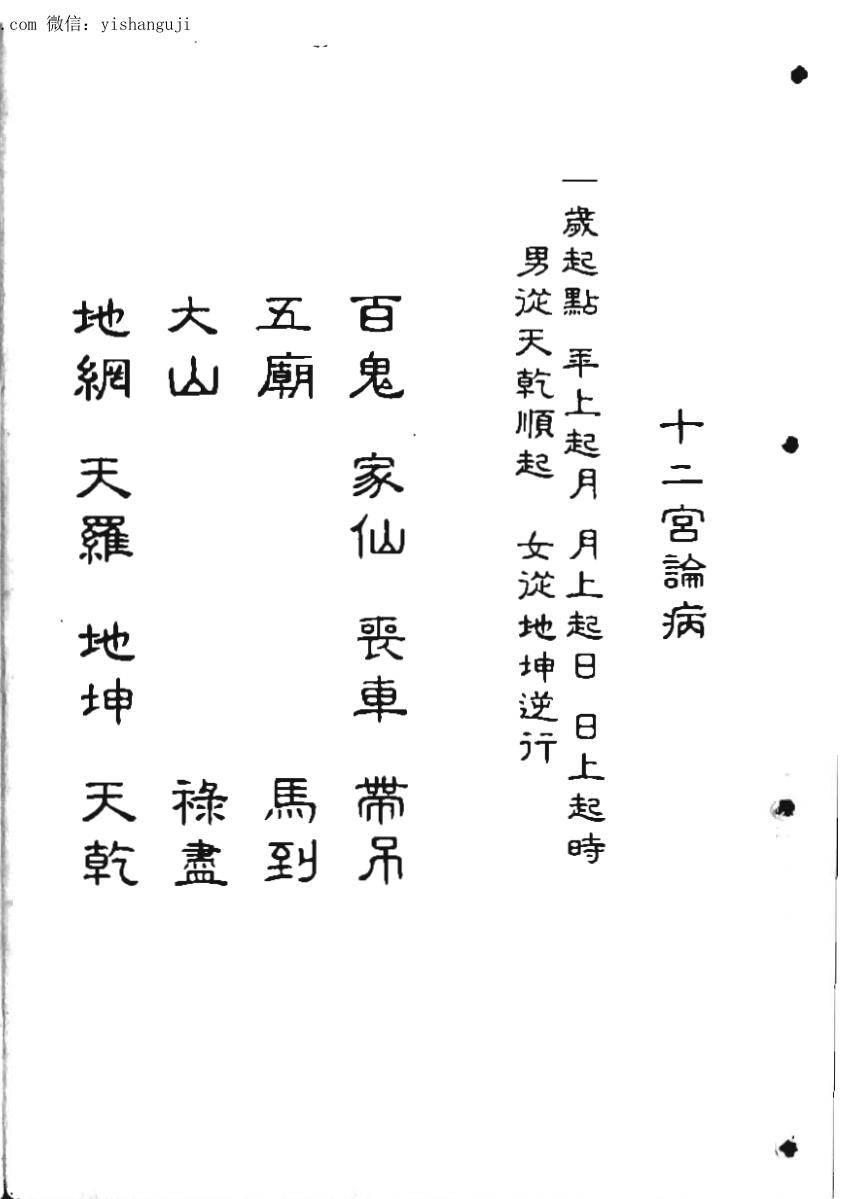 .com 微信：yishanguji
十二宮論病
一歲起點 年上起月 月上起日 日上起時
男從天乾順起 女從地坤逆行
百鬼 家仙 喪車 帶吊
五廟 馬到
大山 祿盡
地網 天羅 地坤 天乾